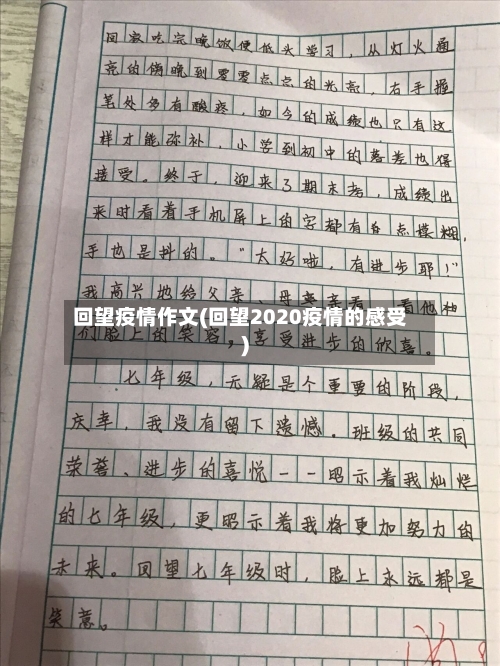 回家吃完晚饭便低头学习，从灯火通
亮的傍晚到零零点点的光亮，右手握
笔处多有酸疼，如今的成绩也只有这
样才能弥补，小学到初中的落差也得
接受。终于，迎来了期末考，成绩出
来时看着手机屏上的字都有多点模糊，
手也是抖的。“太好啦，有进步耶！”
我高兴地给父亲、母亲看，看他
回望疫情作文(回望2020疫情的感受
)
们脸上的笑容，享受进步的欣喜。
七年级，无疑是个重要的阶段，
庆幸，我没有留下遗憾。班级的共同
荣誉、进步的喜悦——昭示着我灿烂
的七年级，更昭示着我将更加努力的
未来。回望七年级时，脸上永远都是
笑意。